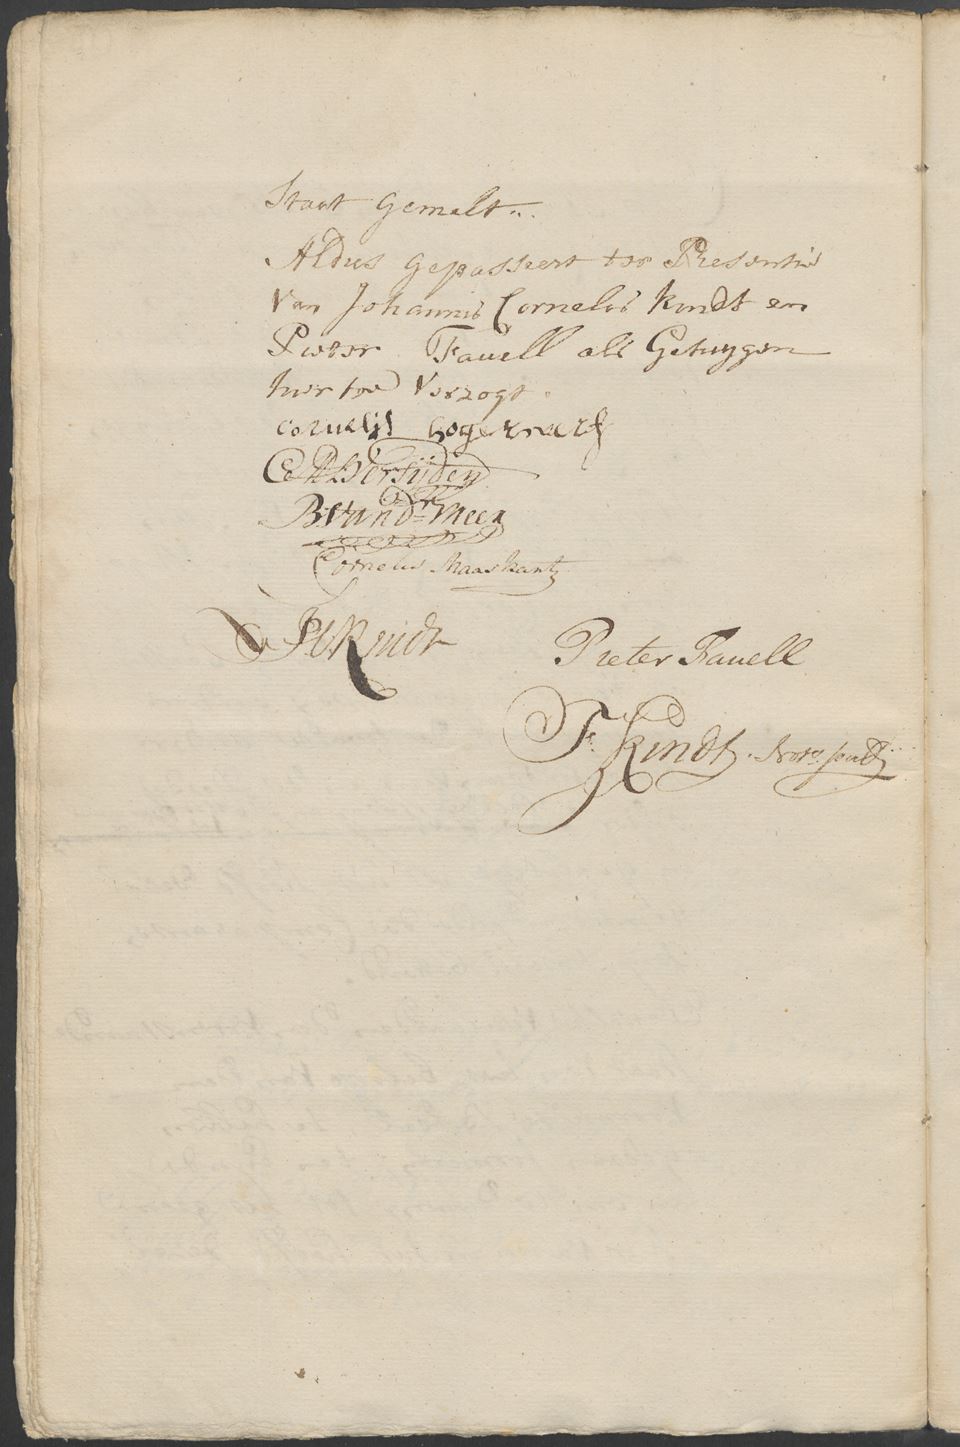 Staat gemelt
Aldus gepasseert ter Presentie
van Johannis Cornelis Kindt en
Pieter Favell als Getuygen
hier toe verzogt.
cornelis hogerwerf
Verheijden
B: van Dr Meer
Cornelis Maaskant
JCKindt
Pieter Favell
F. Kindt. Nots. publ